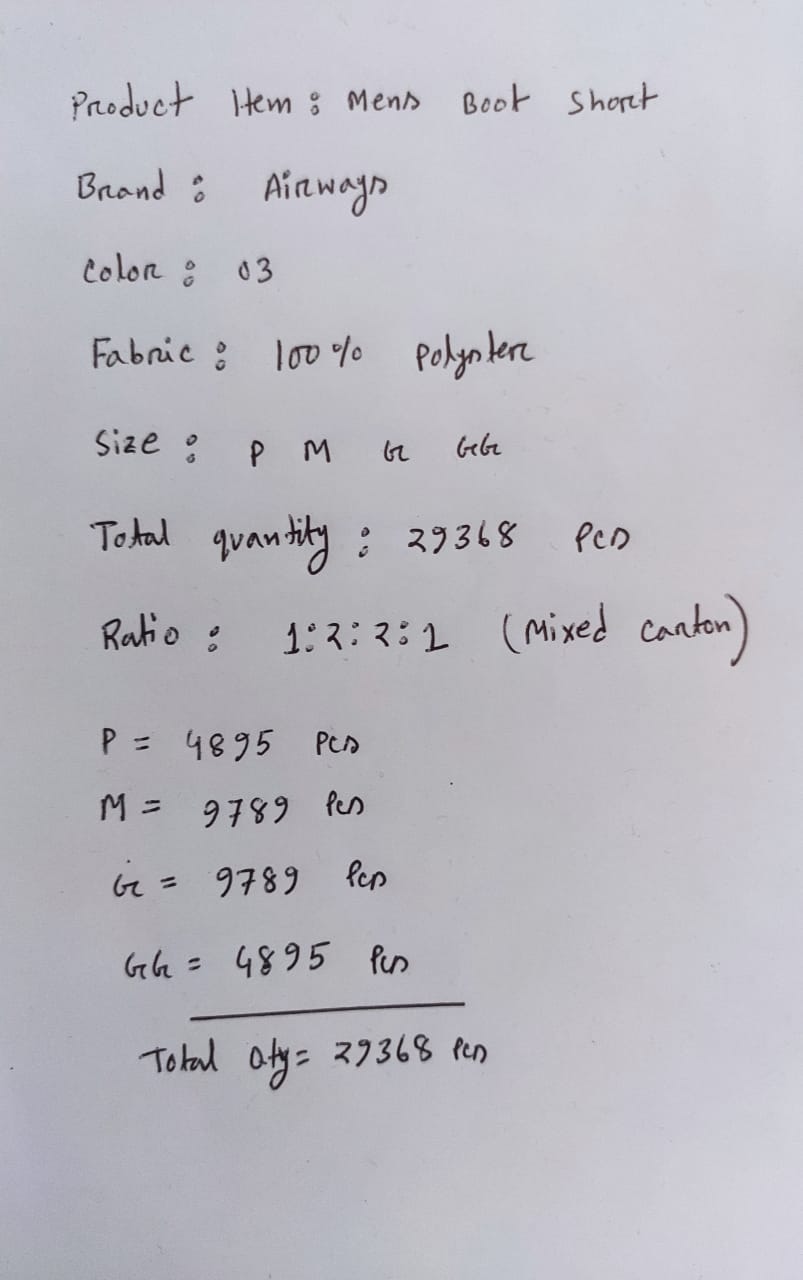 Product Item : Mens Boot Short
Brand : Airways
Color : 03
Fabric : 100% Polyster
Size : P M G GG
Total quantity : 29368 Pcs
Ratio : 1:2:2:1 (Mixed carton)
P = 4895 Pcs
M = 9789 Pcs
G = 9789 Pcs
GG = 4895 Pcs
Total Qty = 29368 Pcs